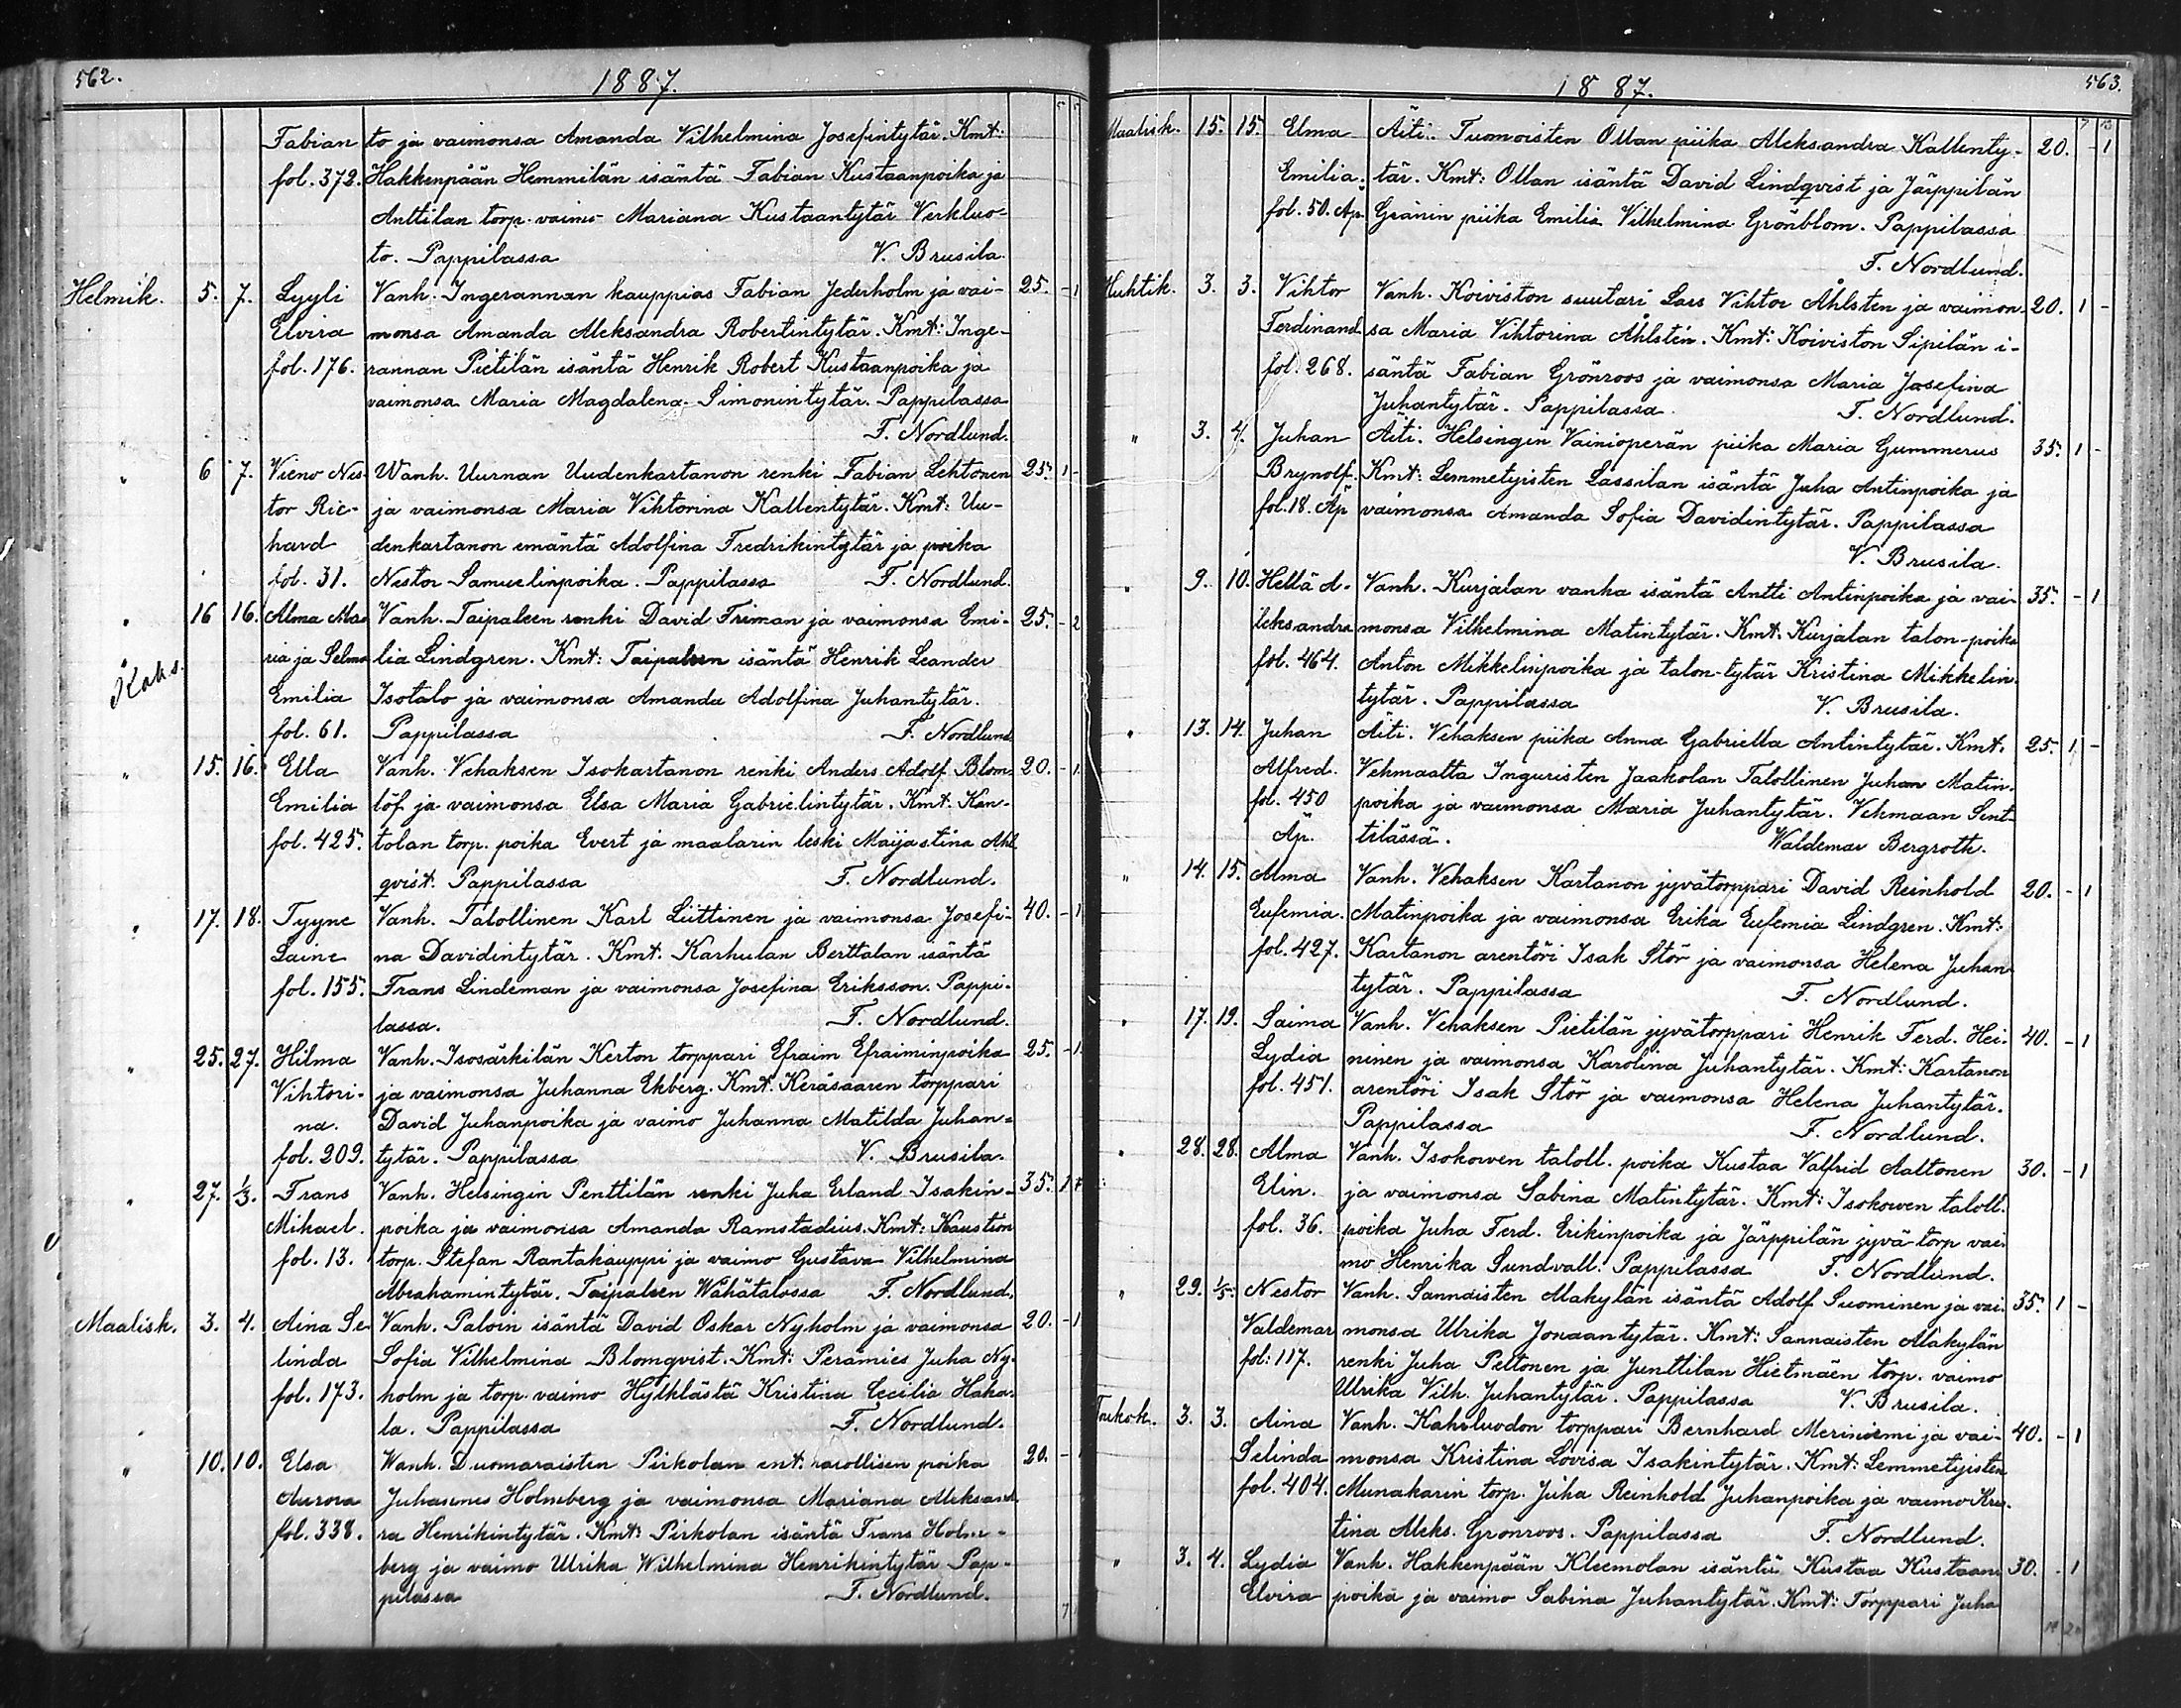 562.
1887.
Fabian to ja vaimonsa Amanda Vilhelmina Josefintytär. Kmt:
fol. 372. Hakkenpään Hemmilän isäntä Fabian Kustaanpoika ja
Anttilan torp. vaimo Mariana Kustaantytär Verkluo-
to. Pappilassa V. Brusila.
Helmik. 5. 7. Lyyli Vanh. Ingerannan kauppias Fabian Jederholm ja vai- 25. - 1
Elvira monsa Amanda Aleksandra Robertintytär. Kmt: Inge-
fol. 176. rannan Pietilän isäntä Henrik Robert Kustaanpoika ja
vaimonsa Maria Magdalena Simonintytär. Pappilassa
F. Nordlund.
" 6 7. Vieno Nes- Wanh. Uurnan Uudenkartanon renki Fabian Lehtonen 25. 1 -
tor Ric- ja vaimonsa Maria Vihtorina Kallentytär. Kmt: Uu-
hard denkartanon emäntä Adolfina Fredrikintytär ja poika
fol. 31. Nestor Samuelinpoika. Pappilassa F. Nordlund.
" 16 16. Alma Ma- Vanh. Taipaleen renki David Friman ja vaimonsa Emi- 25. - 2
Kaks. ria ja Selma lia Lindgren. Kmt: Taipaleen isäntä Henrik Leander
Emilia Isotalo ja vaimonsa Amanda Adolfina Juhantytär.
fol. 61. Pappilassa F. Nordlund
" 15. 16. Ella Vanh. Vehaksen Isokartanon renki Anders Adolf Blom- 20. - 1.
Emilia löf ja vaimonsa Elsa Maria Gabrielintytär. Kmt. Kan-
fol. 425. tolan torp. poika Evert ja maalarin leski Maijastina Ahl
qvist. Pappilassa F. Nordlund.
" 17. 18. Tyyne Vanh. Talollinen Karl Liittinen ja vaimonsa Josefi- 40. - 1
Laine na Davidintytär. Kmt. Karhulan Berttalan isäntä
fol. 155. Frans Lindeman ja vaimonsa Josefina Eriksson. Pappi-
lassa. F. Nordlund.
" 25. 27. Hilma Vanh. Isosärkilän Kerton torppari Efraim Efraiminpoika 25. - 1
Vihtori- ja vaimonsa Juhanna Ekberg. Kmt. Keräsaaren torppari
na. David Juhanpoika ja vaimo Juhanna Matilda Juhan-
fol. 209. tytär. Pappilassa V. Brusila.
" 27. 1/3. Frans Vanh. Helsingin Penttilän renki Juha Erland Isakin- 35. 1
Mikael. poika ja vaimonsa Amanda Ramstadius. Kmt: Kaustion
fol. 13. torp. Stefan Rantakauppi ja vaimo Gustava Vilhelmina
Abrahamintytär. Taipaleen Wähätalossa F. Nordlund.
Maalisk. 3. 4. Aina Se- Vanh. Paloin isäntä David Oskar Nyholm ja vaimonsa 20. - 1
linda Sofia Vilhelmina Blomqvist. Kmt: Perämies Juha Ny-
fol. 173. holm ja torp. vaimo Hylklästä Kristina Cecilia Haka-
la. Pappilassa F. Nordlund.
" 10. 10. Elsa Wanh. Duomaraisten Pirkolan ent. poika 20. - 1
Aurora Juhannes Holmberg ja vaimonsa Mariana Aleksand
fol. 338. ra Henrikintytär. Kmt: Pirkolan isäntä Frans Holm-
berg ja vaimo Ulrika Wilhelmina Henrikintytär Pap-
pilassa F. Nordlund.
563.
1887.
Maalisk. 15. 15. Elma Äiti. Tuomoisten Ollan piika Aleksandra Kallenty- 20. - 1
Emilia. tär. Kmt: Ollan isäntä David Lindqvist ja Järppilän
fol. 50. Äp. Gränin piika Emilia Vilhelmina Grönblom. Pappilassa
F. Nordlund.
Huhtik. 3. 3. Vihtor Vanh. Koiviston suutari Lars Vihtor Åhlsten ja vaimon- 20. 1 -
Ferdinand sa Maria Vihtorina Åhlstén. Kmt: Koiviston Sipilän i-
fol. 268. säntä Fabian Grönroos ja vaimonsa Maria Josefina
Juhantytär. Pappilassa. F. Nordlund.
" 3. 4. Juhan Äiti. Helsingin Vainioperän piika Maria Gummerus 35. 1 -
Brynolf. Kmt: Lemmetyisten Lassilan isäntä Juha Antinpoika ja
fol. 18. Äp vaimonsa Amanda Sofia Davidintytär. Pappilassa
V. Brusila.
" 9. 10. Hellä A- Vanh. Kurjalan vanha isäntä Antti Antinpoika ja vai- 35. - 1
leksandra monsa Vilhelmina Matintytär. Kmt. Kurjalan talon-poika
fol. 464. Anton Mikkelinpoika ja talon-tytär Kristina Mikkelin-
tytär. Pappilassa V. Brusila.
" 13. 14. Juhan Äiti. Vehaksen piika Anna Gabriella Antintytär. Kmt. 25. 1 -
Alfred. Vehmaalta Inguristen Jaakolan Talollinen Juhan Matin-
fol. 450 poika ja vaimonsa Maria Juhantytär. Vehmaan Sent-
Äp. tilässä. Waldemar Bergroth.
" 14. 15. Alma Vanh. Vehaksen Kartanon jyvätorppari David Reinhold 20. - 1
Eufemia. Matinpoika ja vaimonsa Erika Eufemia Lindgren. Kmt:
fol. 427. Kartanon arentöri Isak Stör ja vaimonsa Helena Juhan-
tytär. Pappilassa F. Nordlund.
" 17. 19. Saima Vanh. Vehaksen Pietilän jyvätorppari Henrik Ferd. Hei- 40. - 1
Lydia ninen ja vaimonsa Karolina Juhantytär. Kmt: Kartanon
fol. 451. arentöri Isak Stör ja vaimonsa Helena Juhantytär.
Pappilassa F. Nordlund.
" 28. 28. Alma Vanh. Isokowen taloll. poika Kustaa Valfrid Aaltonen 30. - 1
Elin. ja vaimonsa Sabina Matintytär. Kmt: Isokowen taloll.
fol. 36. poika Juha Ferd. Erikinpoika ja Järppilän jyvä-torp vai-
mo Henrika Sundvall. Pappilassa F. Nordlund.
" 29. 1/5. Nestor Vanh. Sannaisten Alakylän isäntä Adolf Suominen ja vai- 35. 1 -
Valdemar monsa Ulrika Jonaantytär. Kmt: Sannaisten Alakylän
fol: 117. renki Juha Peltonen ja Junttilan Hietmäen torp. vaimo
Ulrika Vilh. Juhantytär. Pappilassa V. Brusila.
Toukok. 3. 3. Aina Vanh. Kahiluodon torppari Bernhard Meriniemi ja vai- 40. - 1
Selinda monsa Kristina Lovisa Isakintytär. Kmt: Lemmetyisten
fol. 404. Munakarin torp. Juha Reinhold Juhanpoika ja vaimo Kris-
tina Aleks. Grönroos. Pappilassa F. Nordlund.
" 3. 4. Lydia Vanh. Hakkenpään Kleemolan isäntä Kustaa Kustaan- 30. - 1
Elvira poika ja vaimo Sabina Juhantytär. Kmt: Torppari Juha